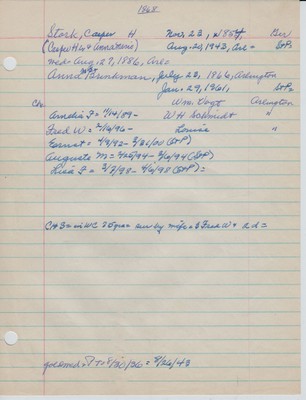 1868
Stork, Casper H Nov, 23, 1854 Ger
(Casper H Anna ) Aug. 20, 1943, Arl - StP,
Wed - Aug. 27, 1886, Arlo
Anna M Brinkman, July 23, 1866, Arlington
Jan. 29, 1961, StP.
Ch: Wm. Vogt Arlington
Amelia F = 1/14/09 - W H Schmidt "
Fred W = 2/16/96 - Louise "
Ernest = 4/9/92 - 3/26/00 (StP)
Auguste M = 4/25/94 - 8/6/94 (StP)
Lisa F = 3/7/98 - 4/6/98 (StP) =
CA 3m in WC 75 yrs = sur by wife + 3 Fred W + 2 d =
joined = P T = 8/30/36 = 8/26/43